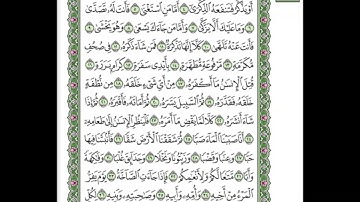 أَوْ يَذَّكَّرُ فَتَنفَعَهُ ٱلذِّكْرَىٰٓ أَمَّا مَنِ ٱسْتَغْنَىٰ فَأَنتَ لَهُۥ تَصَدَّىٰ
وَمَا عَلَيْكَ أَلَّا يَزَّكَّىٰ وَأَمَّا مَن جَآءَكَ يَسْعَىٰ وَهُوَ يَخْشَىٰ
فَأَنتَ عَنْهُ تَلَهَّىٰ كَلَّآ إِنَّهَا تَذْكِرَةٌ فَمَن شَآءَ ذَكَرَهُۥ فِى صُحُفٍ
مُّكَرَّمَةٍ مَّرْفُوعَةٍ مُّطَهَّرَةٍ بِأَيْدِى سَفَرَةٍ كِرَامٍ بَرَرَةٍ
قُتِلَ ٱلْإِنسَٰنُ مَآ أَكْفَرَهُۥ مِنْ أَىِّ شَىْءٍ خَلَقَهُۥ مِن نُّطْفَةٍ
خَلَقَهُۥ فَقَدَّرَهُۥ ثُمَّ ٱلسَّبِيلَ يَسَّرَهُۥ ثُمَّ أَمَاتَهُۥ فَأَقْبَرَهُۥ ثُمَّ إِذَا
شَآءَ أَنشَرَهُۥ كَلَّا لَمَّا يَقْضِ مَآ أَمَرَهُۥ فَلْيَنظُرِ ٱلْإِنسَٰنُ إِلَىٰ طَعَامِهِۦٓ
أَنَّا صَبَبْنَا ٱلْمَآءَ صَبًّا ثُمَّ شَقَقْنَا ٱلْأَرْضَ شَقًّا فَأَنۢبَتْنَا فِيهَا
حَبًّا وَعِنَبًا وَقَضْبًا وَزَيْتُونًا وَنَخْلًا وَحَدَآئِقَ غُلْبًا وَفَٰكِهَةً
وَأَبًّا مَّتَٰعًا لَّكُمْ وَلِأَنْعَٰمِكُمْ فَإِذَا جَآءَتِ ٱلصَّآخَّةُ يَوْمَ يَفِرُّ
ٱلْمَرْءُ مِنْ أَخِيهِ وَأُمِّهِۦ وَأَبِيهِ وَصَٰحِبَتِهِۦ وَبَنِيهِ لِكُلِّ